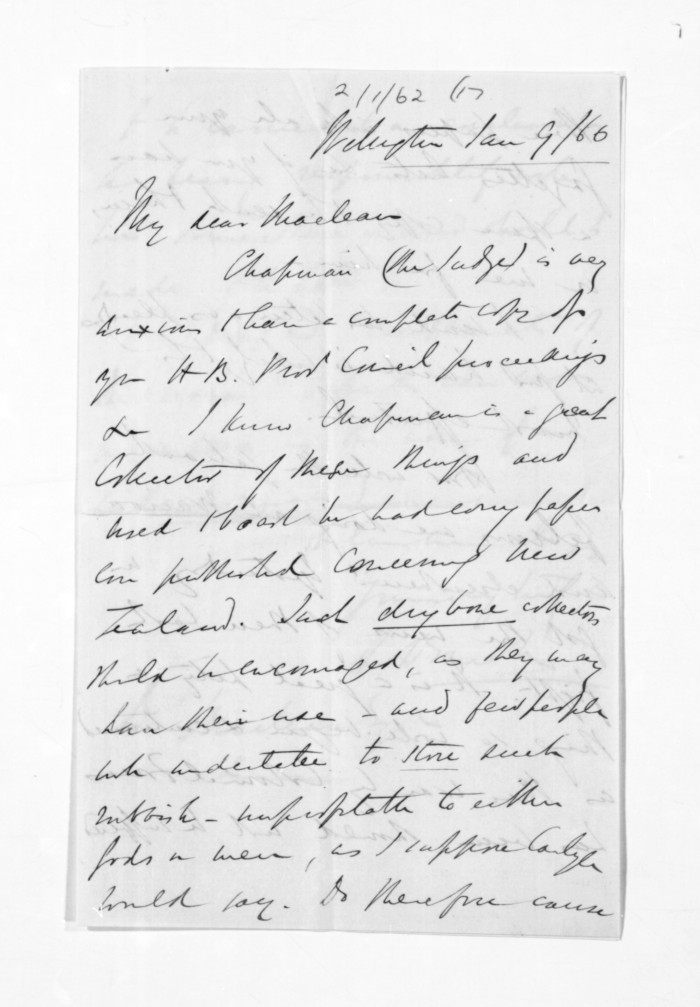 2/1/62 (17
Wellington Jan 9/66
My dear Maclean
Chapman (the Judge) is very
anxious t have a complete copy of
yr H.B. Prov Council proceedings
&c I know Chapman is a great
Collector of these things and
used t boast he had every paper
ever published concerning New
Zealand. Such dry bone collectors
should be encouraged, as they may
have their use - and few people
will undertake to store such
rubbish - unprofitable to either
Gods or men, as I suppose Carlyle
would say. Do therefore cause